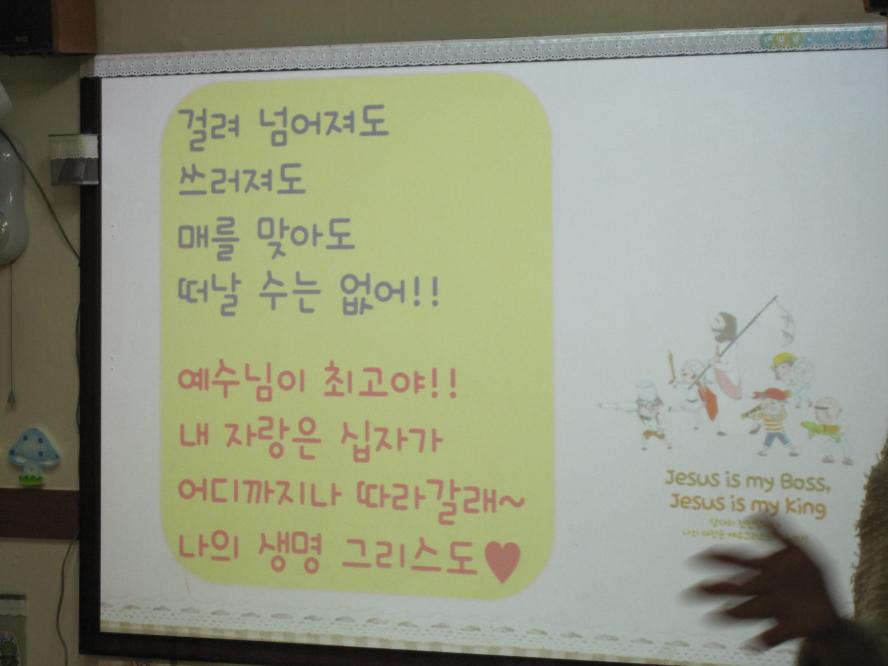 걸려 넘어져도
쓰러져도
매를 맞아도
떠날 수는 없어!!
예수님이 최고야!!
내 자랑은 십자가
어디까지나 따라갈래~
나의 생명 그리스도♥
Jesus is my Boss,
Jesus is my King